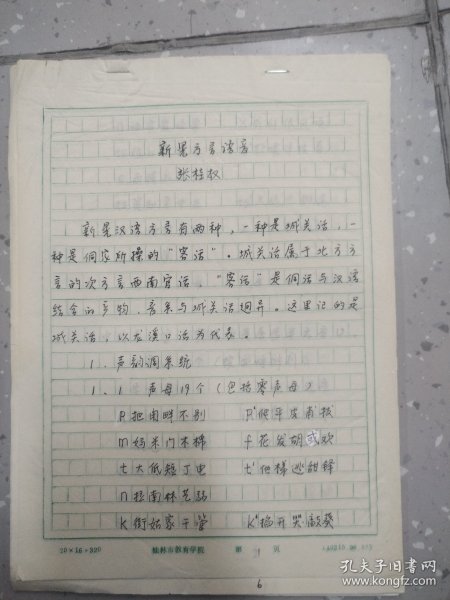 新晃方言语音
张桂权
新晃汉语方言有两种，一种是城关话，一
种是侗家所操的“客话”。城关话属于北方方
言的次方言西南官话，“客话”是侗语与汉语
结合的产物，音系与城关话迥异。这里记的是
城关话，以龙溪口话为代表。
1．声韵调系统
1．1 声母19个（包括零声母）
p 把 布 盼 不 别 p' 爬 平 皮 甫 拔
m 妈 米 门 木 棉 f 花 发 胡 或 欢
t 大 低 短 丁 电 t' 他 梯 逃 甜
n 拉 南 林
k 街 姑 家 干 管 k' 揩 开 哭 敲 葵
20×16=320 桂林市教育学院 第 页
6
孔夫子旧书网